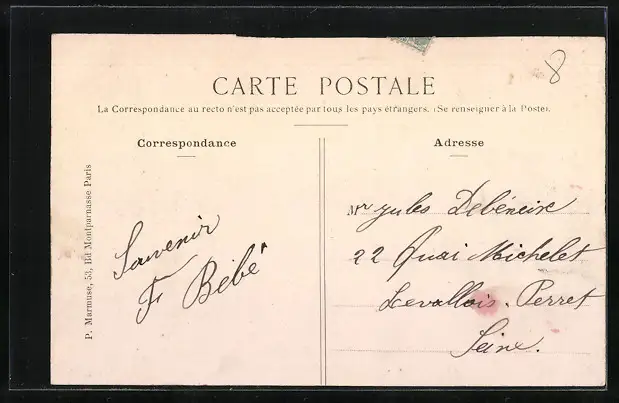 8
CARTE POSTALE
La Correspondance au recto n'est pas acceptée par tous les pays étrangers. (Se renseigner à la Poste).
Correspondance
Adresse
P. Marmuse, 53, Bd Montparnasse Paris
Souvenir
F. Bébé
Mr Jules Debéneix
22 Quai Michelet
Levallois-Perret
Seine.